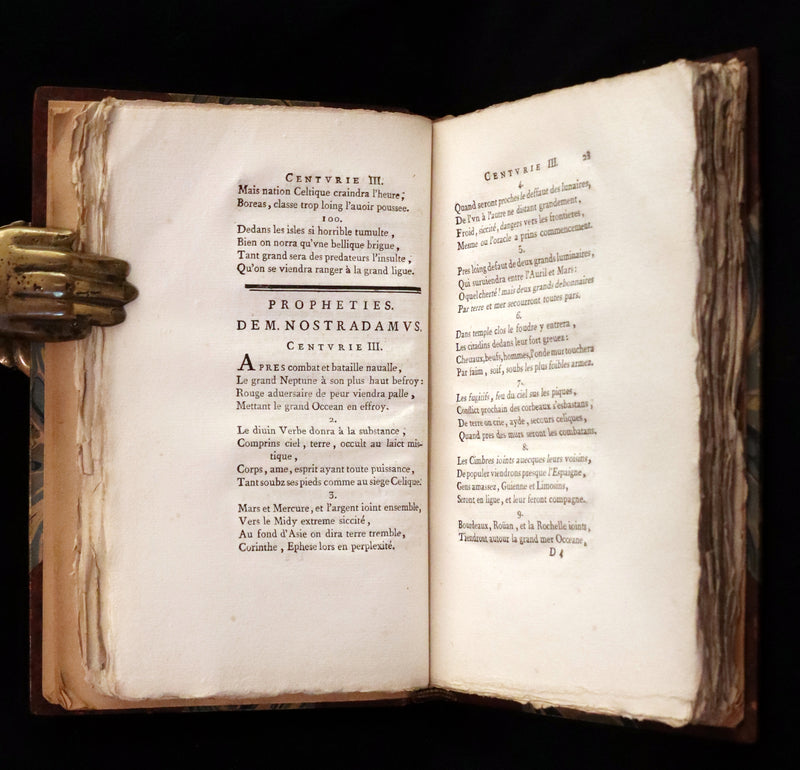 CENTVRIE III.
Mais nation Celtique craindra l'heure ;
Boreas, classe trop loing l'auoir poussee.
100.
Dedans les isles si horrible tumulte ,
Bien on norra qu'vne bellique brigue ,
Tant grand sera des predateurs l'insulte ,
Qu'on se viendra ranger à la grand ligue.
PROPHETIES.
DE M. NOSTRADAMVS.
CENTVRIE III.
APRES combat et bataille naualle ,
Le grand Neptune à son plus haut befroy :
Rouge aduersaire de peur viendra palle ,
Mettant le grand Occean en effroy.
2.
Le diuin Verbe donra à la substance ,
Comprins ciel , terre , occult au laict mis-
tique ,
Corps, ame, esprit ayant toute puissance ,
Tant soubz ses pieds comme au siege Celique.
3.
Mars et Mercure, et l'argent ioint ensemble,
Vers le Midy extreme siccité ,
Au fond d'Asie on dira terre tremble,
Corinthe , Ephese lors en perplexité.
CENTVRIE III. 28
4.
Quand seront proches le deffaut des lunaires,
De l'vn à l'autre ne distant grandement ,
Froid, siccité, dangers vers les frontieres,
Mesme ou l'oracle a prins commencement.
5.
Pres loing defaut de deux grands luminaires,
Qui suruiendra entre l'Auril et Mars :
O quel cherté ! mais deux grands debonnaires
Par terre et mer secourront toutes pars.
6.
Dans temple clos le foudre y entrera ,
Les citadins dedans leur fort greuez :
Cheuaux, beufs, hommes, l'onde mur touchera
Par faim , soif , soubs les plus foibles armez.
7.
Les fugitifs , feu du ciel sus les piques ,
Conflict prochain des corbeaux s'esbatans ,
De terre on crie , ayde , secours celiques ,
Quand pres des murs seront les combatans.
8.
Les Cimbres ioints auecques leurs voisins,
De populer viendrons presque l'Espaigne ,
Gens amassez, Guienne et Limosins,
Seront en ligue , et leur feront compagne.
9.
Bourleaux, Roüan , et la Rochelle ioints,
Tiendront autour la grand mer Occeane,
D 4